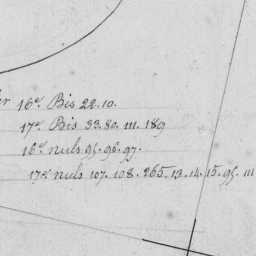 16e. Bis 22.10.
17e. Bis 33.80. 111. 189
16e. nuls 95. 96. 97.
17e. nuls 107. 108. 265. 13. 14. 15. 95. 111